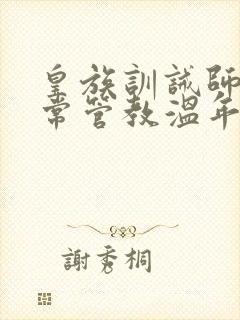 皇族訓誡師
常管教溫年
謝秀桐